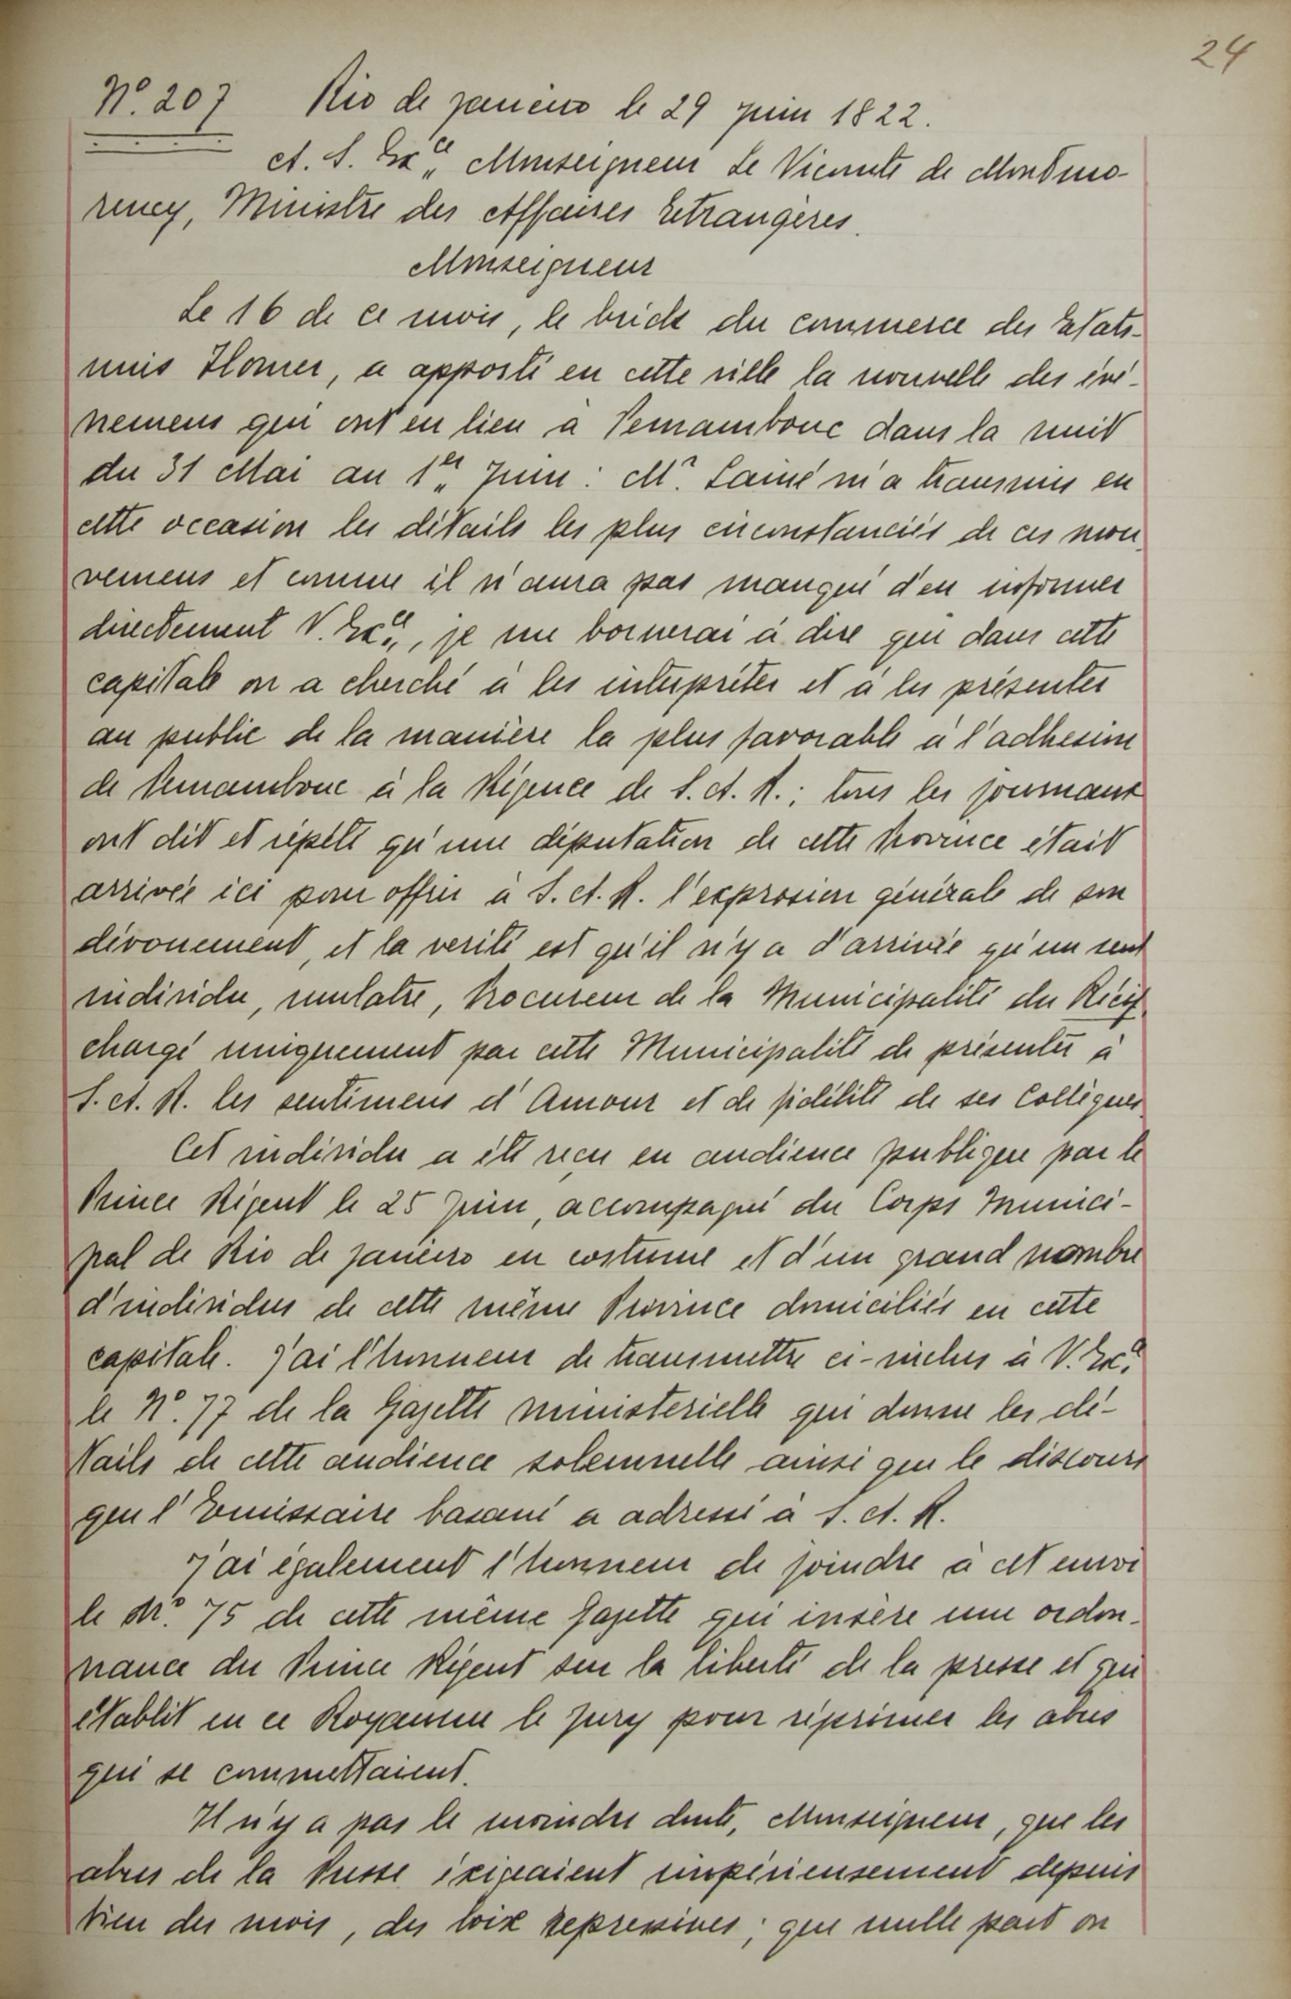 24
Nº. 207 Rio de janeiro le 29 juin 1822.
A. S. Exce,, Monseigneur Le Vicomte de Montmo-
rency, Ministre des Affaires Etrangères.
Monseigneur
Le 16 de ce mois, le brick du commerce des Etats-
unis Homer, a apporté en cette ville la nouvelle des évé-
nemens qui ont eu lieu à Pernambouc dans la nuit
du 31 Mai au 1er,, Juin : Mr. Lainé m'a transmis en
cette occasion les détails les plus circonstanciés de ces mou-
vemens et comme il n'aura pas manqué d'en informer
directement V. Exce,,, je me bornerai à dire que dans cette
capitale on a cherché à les interpréter et à les présenter
au public de la manière la plus favorable à l'adhesion
de Pernambouc à la Régence de S. A. R. ; tous les journaux
ont dit et répété qu'une députation de cette Province était
arrivée ici pour offrir à S. A. R. l'expression générale de son
dévouement, et la verité est qu'il n'y a d'arrivée qu'un seul
individu, mulatre, Procureur de la Municipalité du Récif
chargé uniquement par cette Municipalité de présenter à
S. A. R. les sentimens d'Amour et de fidélité de ses Collègues.
Cet individu a été reçu en audience publique par le
Prince Régent le 25 juin, accompagné du Corps Munici-
pal de Rio de janeiro en costume et d'un grand nombre
d'individus de cette même Province domiciliés en cette
capitale. J'ai l'honneur de transmettre ci-inclus à V. Exce.
le Nº. 77 de la Gazette ministerielle qui donne les dé-
tails de cette audience solemnelle ainsi que le discours
que l'Emissaire basané a adressé à S. A. R.
J'ai également l'honneur de joindre à cet envoi
le Nº. 75 de cette même Gazette qui insère une ordon-
nance du Prince Régent sur la liberté de la presse et qui
établit en ce Royaume le jury pour réprimer les abus
qui se commettaient.
Il n'y a pas le moindre doute, Monseigneur, que les
abus de la Presse éxigeaient impérieusement depuis
bien des mois, des loix repressives ; que nulle part on